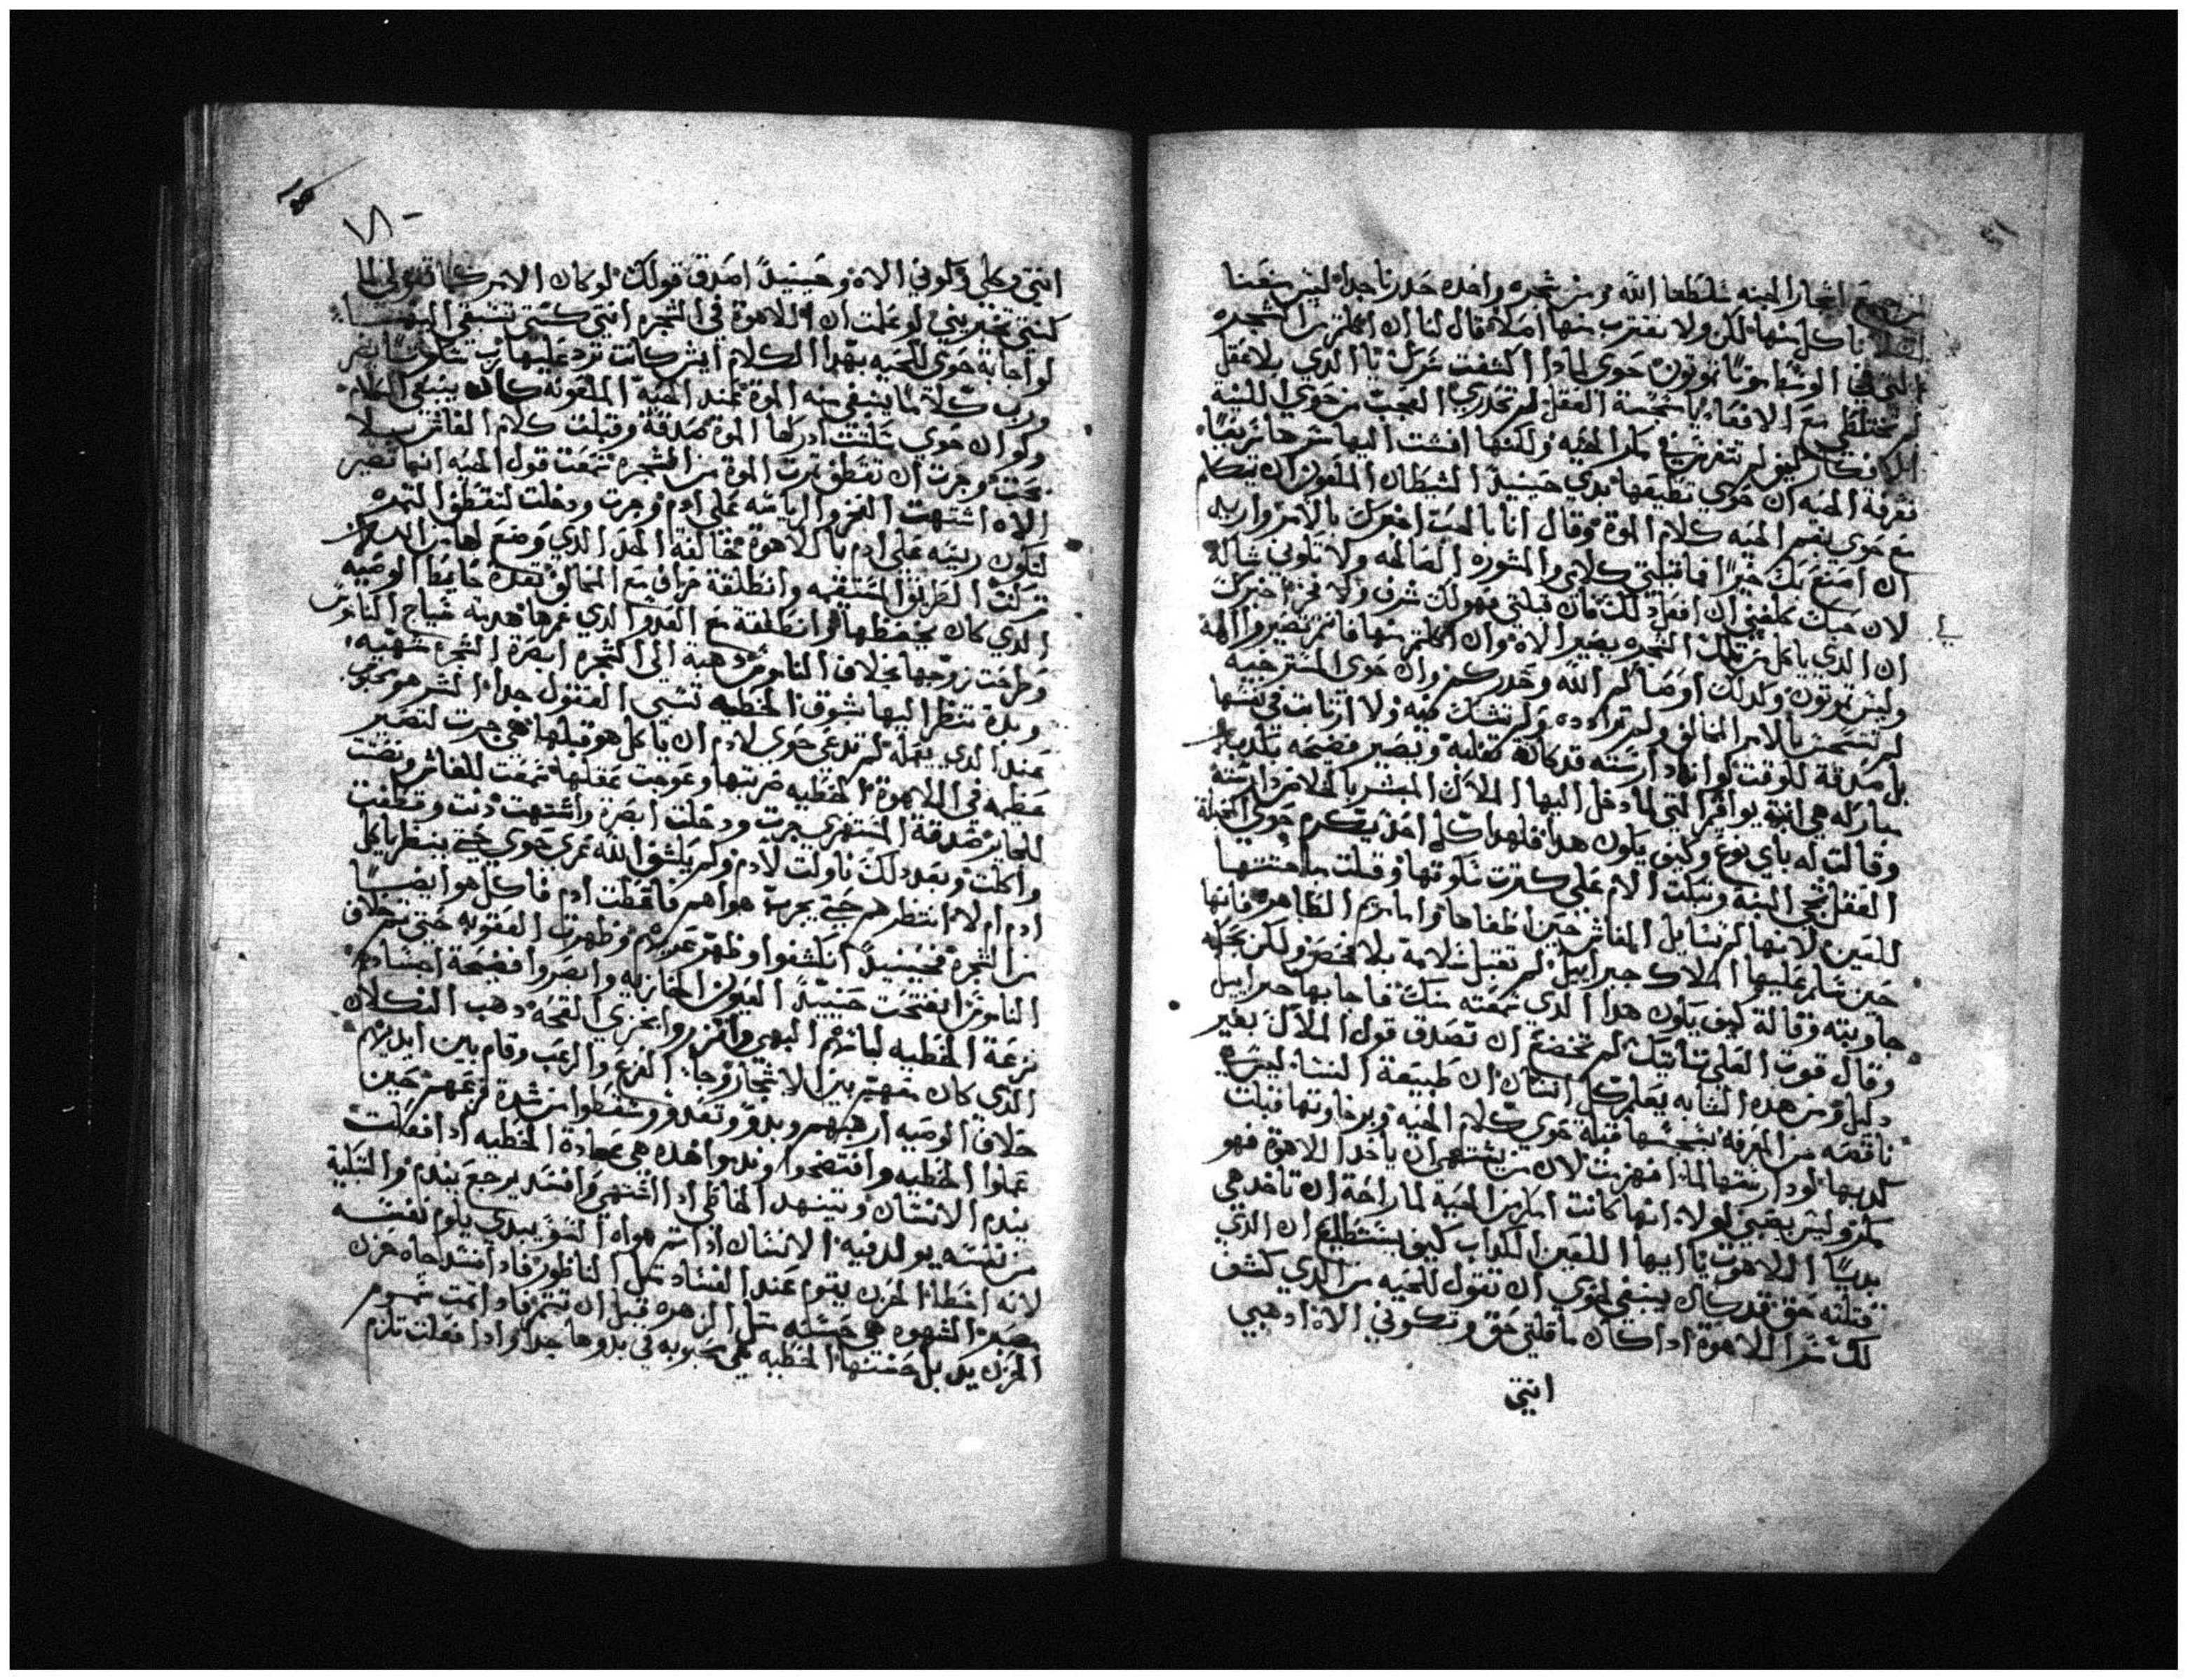 من جميع اشجار الجنه سلطنا الله ومن شجره واحده حدرنا جدا ليس سعنا
ناكل منها لكن ولا نقترب منها اصلا قال لنا ان اكلتم من الشجره
التي في الوسط موتا تموتون حوي لمادا اكشفت سرك يا الدي بلا عقل
لم تختلطي مع الافعا يا سخيفة العقل لم تحدري العجب من حوي اللينه
كيف لم تنفرن من مكر الحيه ولكنها افشت اليها سرها سريعا
تعرفة الحيه ان حوي تطيعها بدي حينيد الشيطان الملعون ان يتكلم
مع حوي بفم الحيه كلام الموة وقال انا بالحب اخبرك بالامر واريد
ان اصنع بك خيرا فاقبلي كلامي والمشوره الصالحه ولا تكوني شاكه
لان حبك كلفني ان افعل دلك فان قبلتي فهو لك شرف ولا فخر اخبرك
ان الدي ياكل من تلك الشجره يصير الاه وان اكلتم منها فانتم تصيروا الهة
وليس تموتون ولدلك اوصاكم الله وحدركم وان حوي المسترخيه
لم تستحن بالامر الخالق ولم تراوده ولم تشك فيه ولا ارتابت في نفسها
بل صدقة للوقت لو انها دارسته قد كانة تغلبه ويصير فضيحه بكدبه
مباركه هي ابنة يواقيم التي لما دخل اليها الملاك المبشر بالكلام دارسته
وقالت له باي نوع وكيف يكون هدا فلهدا كل احد يكرم حوي القليلة
العقل بقي البنه وبكت الام على كترت سكوتها وقبلت ما هتتها
للعين لانها لم تسايل الفاش حين اطغاها واما مريم الطاهره فانها
حين سلم عليها الملاك جبراييل لم تقبل سلامة بلا فحص ولكن بحكمه
جاوبته وقالة كيف يكون هدا الدي سمعته منك فاجابها جبراييل
وقال قوت العلي تاتيك لم تخضع ان تصدق قول الملاك بغير
دليل ومن هده النشابه يعلم كل انسان ان طبيعة النسا ليسره
ناقصه من المعرفه بسخسها قبلة حوي كلام الحيه وبرخاوتها قبلت
كدبها لو دارستها لما انهزمت لان من يشتهي ان ياخد اللاهوة فهو
يكمر وليس يقبي لولا انها كانت امكر من الحيه لما راحة ان تاخد هي
بديا اللاهوت يا ايها اللعين الكداب كيف يستطيع ان الدي
قتلته حق قد كان ينبغي لحوي ان تقول للحيه من الدي كشف
لك سر اللاهوة اداكان ما قلتي حق وتكوني الاه ادهبي
انتي
انتي وكلي وكوني الاه وحينيدا اصدق قولك لو كان الامر كما تقولي لما
كنتي تخبريني لو علمت ان اللاهوة في الشجره انتي كنتي تسبقي اليها
لو اجابة حوي للحيه بهدا الكلام ايش كانت ترد عليها رب سكوتا يضر
ورب كلاما ينبغي منه الموة عند الحيه الملعونه كان ينبغي الكلام
ولو ان حوي سكتت ادركها الموة صدقة وقبلت كلام الغاش بلا
بحت وجرت ان تقطف تمرت الموة من الشجره سمعت قول الحيه انها تصير
الاه اشتهت الفخر والرياسه على ادم وجرت ودخلت لتقطف التمره
لتكون ريسه على ادم باللاهوة مخالفة الحد الدي وضع لها من الله
تركت الطريق المستقيمه وانطلقة مراق مع المخالف نقدة حايط الوصيه
الدي كان يحفظها وانطلقة مع العدو الدي غرها هدمة سياج الناموس
وطرحت زوجها بخلاف الناموس دهبة الي الشجره ابصرة الشجره شهيه
وبدة تنظر اليها شوق الخطيه تسبي العقول جدا الشر هو محبوب
عند الدي يعمله لم تدعي حوي لادم ان ياكل هو قبلها هي جرت لتصير
عظيمه في اللاهوة الخطيه ضربتها وعوجت عقلها سمعت للغاش ونصتت
للحاير صدقة المستهزي جرت ودخلت ابصرة واشتهت دنت وقطفت
واكلت وبعد دلك ناولت لادم ولم يكشف الله عري حوي حتي ينظر ياكل
ادم ام لا انتظرهم حتي يجرب هواهم فاقتطف ادم فاكل هو ايضا
من الشجره فحينيدا انكشفوا وظهر عريهم وظهرت العقوبه حين تم خلاف
الناموس انفتحت حينيدا العيون الخازيه وابصروا فضيحة اجسادهم
نزعة الخطيه لباسهم البهي واتزروا بخزي الفحه دهب النكلان
الدي كان معهم بين الاشجار وجا الفزع والرعب وقام بين ايديهم
خلاف الوصيه ارهبهم وبدو وتعدو وسقطوا من شدة فزعهم حين
عملوا الخطيه وافتضحوا وندموا هده هي عادة الخطيه ادا فعلت
يندم الانسان ويتنهد الخاطي ادا اشتهي وافسد يرجع يندم والتبكية
من نفسه يولد فيه الانسان ادا تم هواه السو يبدي يلوم نفسه
لانه اخطا الحزن يقوم عند الفساد متل الناظور فادا فسد جاه حزن
بصبر الشهوه هي حسنه متل الزهره قبل ان تتم فادا تمت تسوم
الحزن يدبل حسنها الخطيه هي محبوبه في بدوها جدا وادا فعلت تلزم